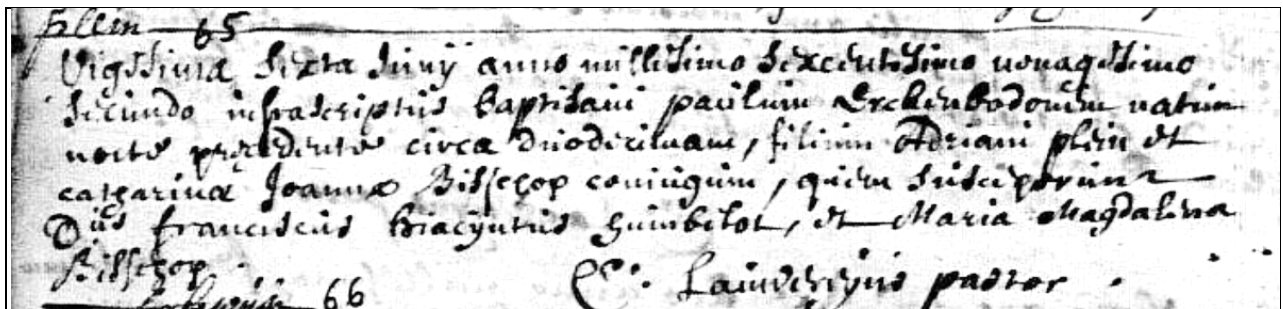 plein 65
Vigesima sexta Junij anno millesimo sexcentesimo nonagesimo
secundo infrascriptus baptisavi paulum Erckenbodonem natum
nocte precedente circa duodecimam, filium Adriani plein et
catharinæ Joannæ Bisschop coniugum, quem susceperunt
Dnus franciscus hiacyntus humbelot, et Maria Magdalena
Bisschop.
pastor.
66